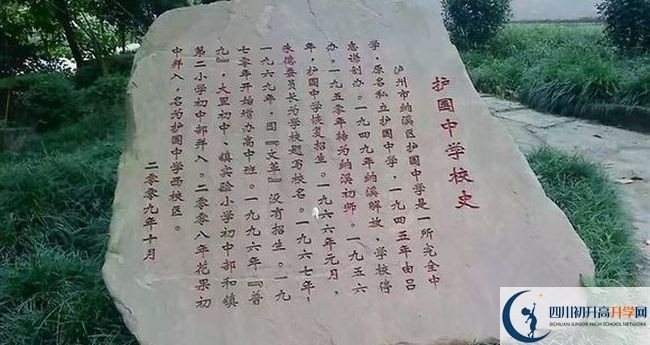 护国中学校史
泸州市纳溪区护国中学是一所完全中
学，原名私立护国中学，一九四五年由吕
志谋创办。一九四九年纳溪解放，学校停
办。一九五零年转为纳溪初师。一九五六
年，护国中学恢复招生。一九六六年元月，
朱德委员长为学校题写校名。一九六七年，
一九六九年，因『文革』没有招生。一九
七零年开始增办高中班。一九九六年『普
九』，大里初中、镇实验小学初中部和镇
第二小学初中部并入。二零零八年花果初
中并入，名为护国中学西校区。
二零零九年十月
四川初升高升学网
SICHUAN JUNIOR HIGH SCHOOL NETWORK